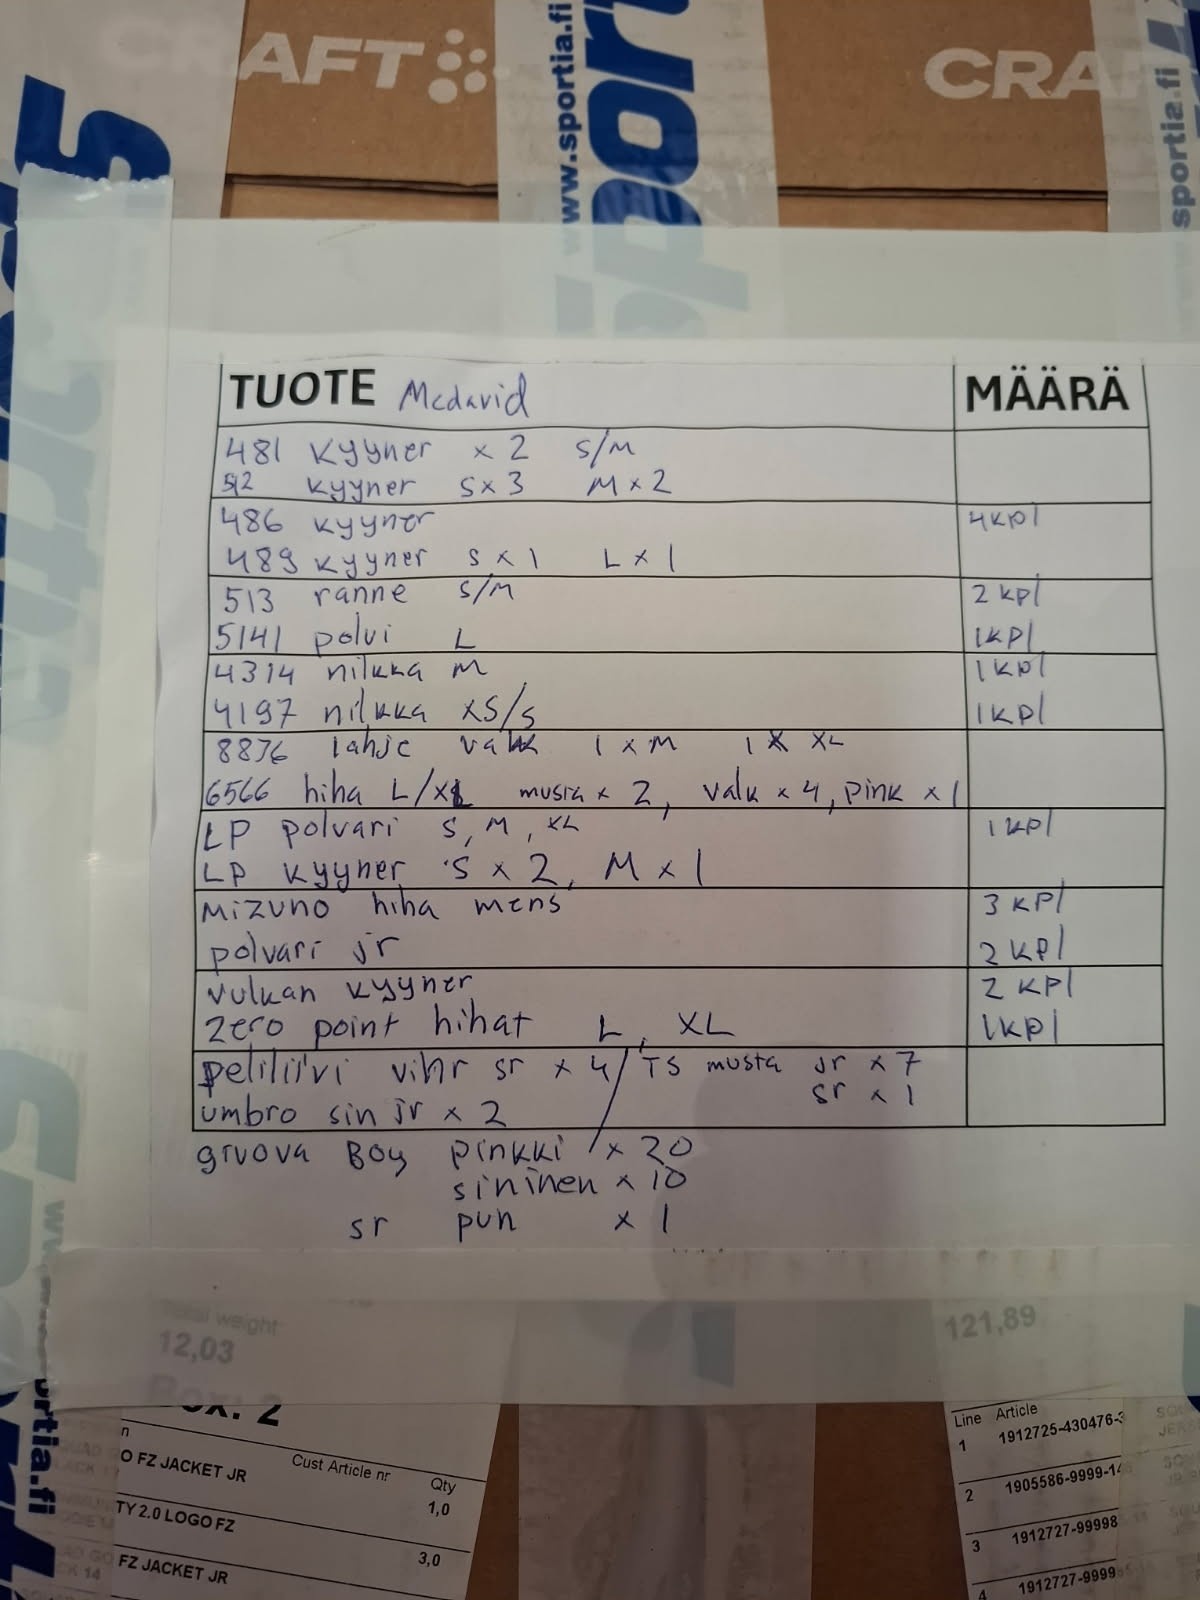 CRAFT
www.sportia.fi
CRAF
sportia.fi
TUOTE Mcdavid MÄÄRÄ
481 kyyner x 2 S/M
512 kyyner S x 3 M x 2
486 kyyner 4kpl
489 kyyner S x 1 L x 1
513 ranne S/M 2 kpl
5141 polvi L 1kpl
4314 nilkka M 1kpl
4197 nilkka XS/S 1kpl
8836 lahje valk 1 x M 1 x XL
6566 hiha L/XL musta x 2, valk x 4, pink x 1
LP polvari S, M, XL 1kpl
LP kyyner S x 2, M x 1
Mizuno hiha mens 3 kpl
polvari jr 2 kpl
vulkan kyyner 2 kpl
Zero point hihat L, XL 1kpl
peliliivi vihr sr x 4 / TS musta jr x 7
sr x 1
umbro sin jr x 2
gruova Boy pinkki x 20
sininen x 10
sr pun x 1
weight
12,03
121,89
Box: 2
Cust Article nr Qty
O FZ JACKET JR 1,0
TY 2.0 LOGO FZ 3,0
FZ JACKET JR
Line Article
1 1912725-430476-3
2 1905586-9999-14
3 1912727-99998
4 1912727-9999